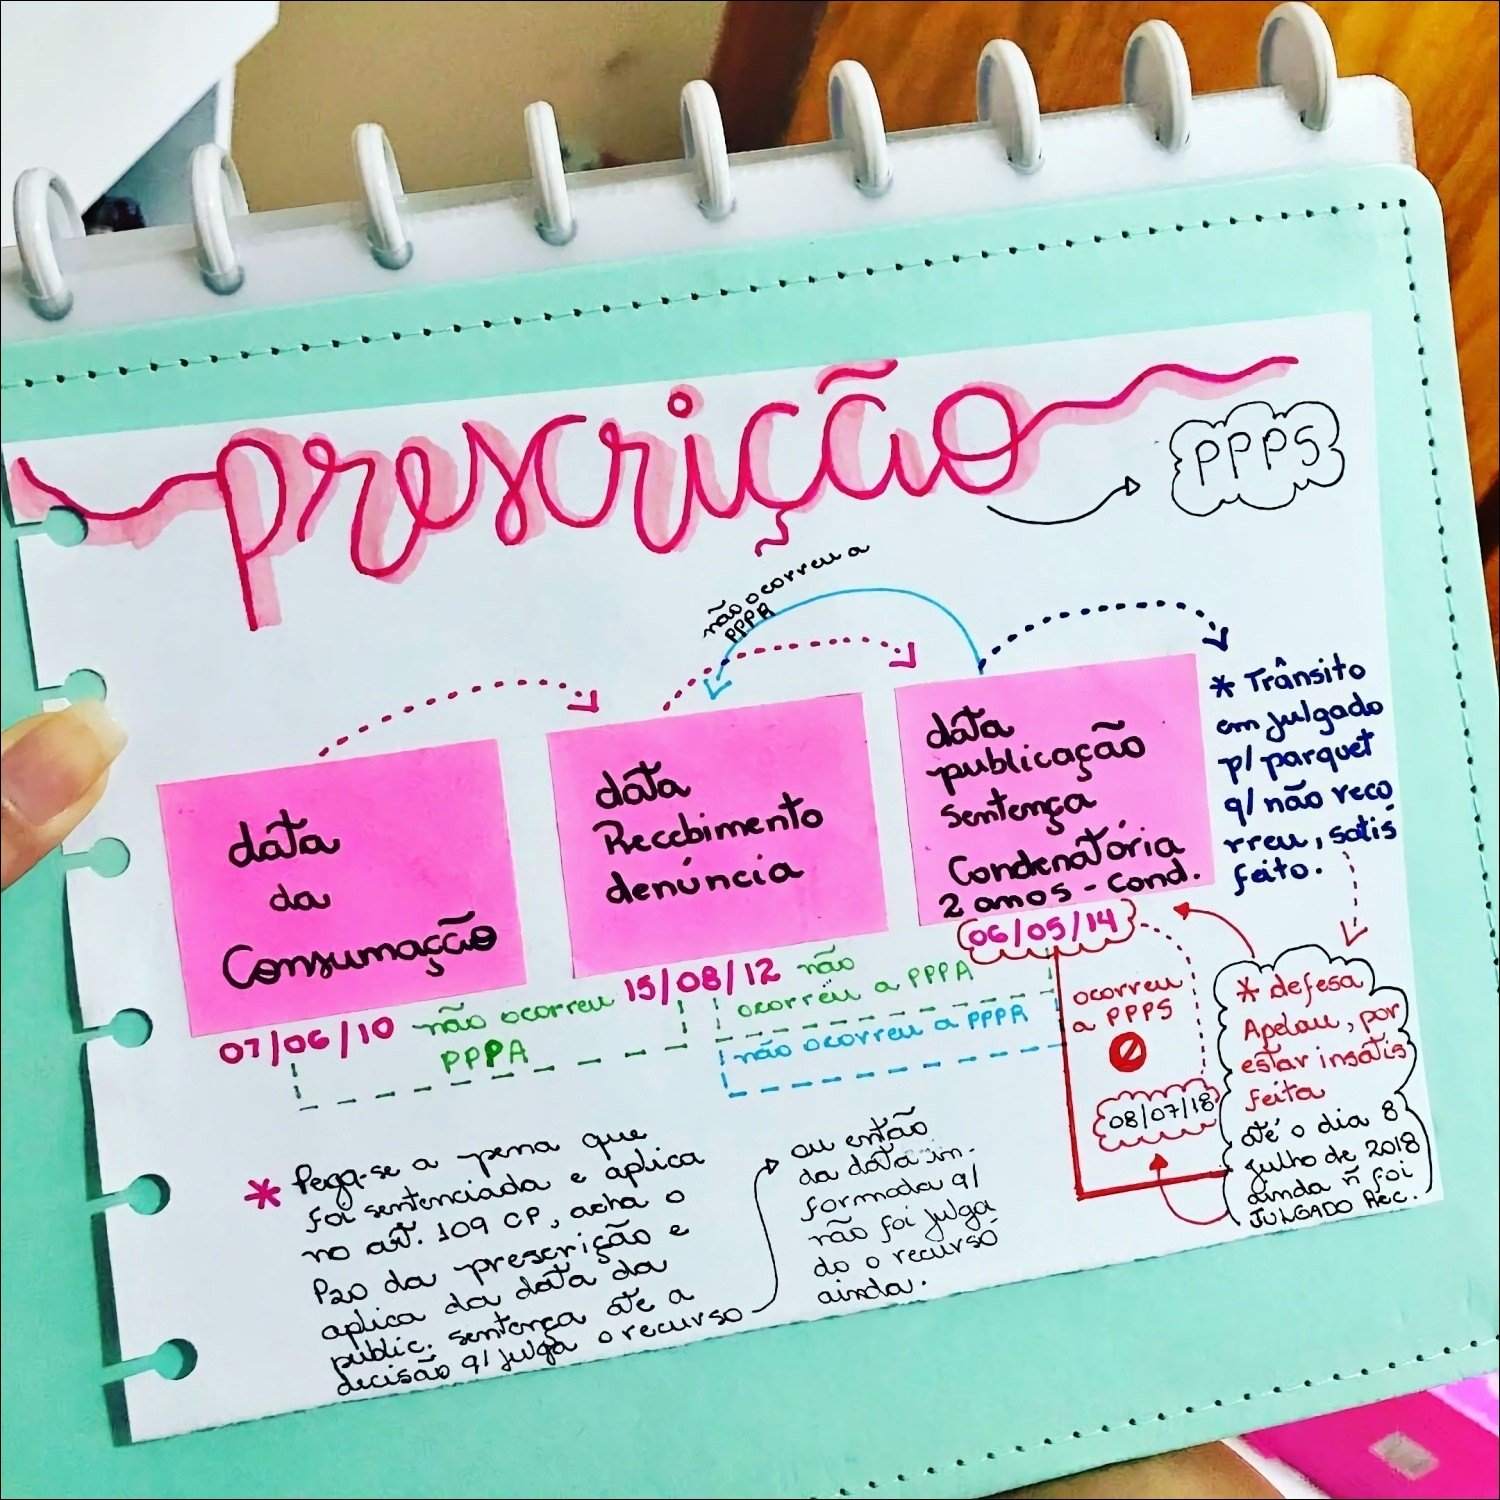 Prescrição
PPPS
não ocorreu a
PPPR
data
da
Consumação
data
Recebimento
denúncia
data
publicação
sentença
Condenatória
2 anos - Cond.
* Trânsito
em julgado
p/ parquet
q/ não reco
rreu, satis
feito.
07/06/10
não ocorreu
PPPA
15/08/12
não
ocorreu a PPPA
não ocorreu a PPPR
06/05/14
ocorreu
a PPPS
08/07/18
* defesa
Apelou, por
estar insatis
feita
até o dia 8
julho de 2018
ainda ñ foi
JULGADO REC.
* Pega-se a pena que
foi sentenciada e aplica
no art. 109 CP, acha o
Pzo da prescrição e
aplica da data da
public. sentença até a
decisão q/ julga o recurso
ou então
da data in.
formada q/
não foi julga
do o recurso
ainda.